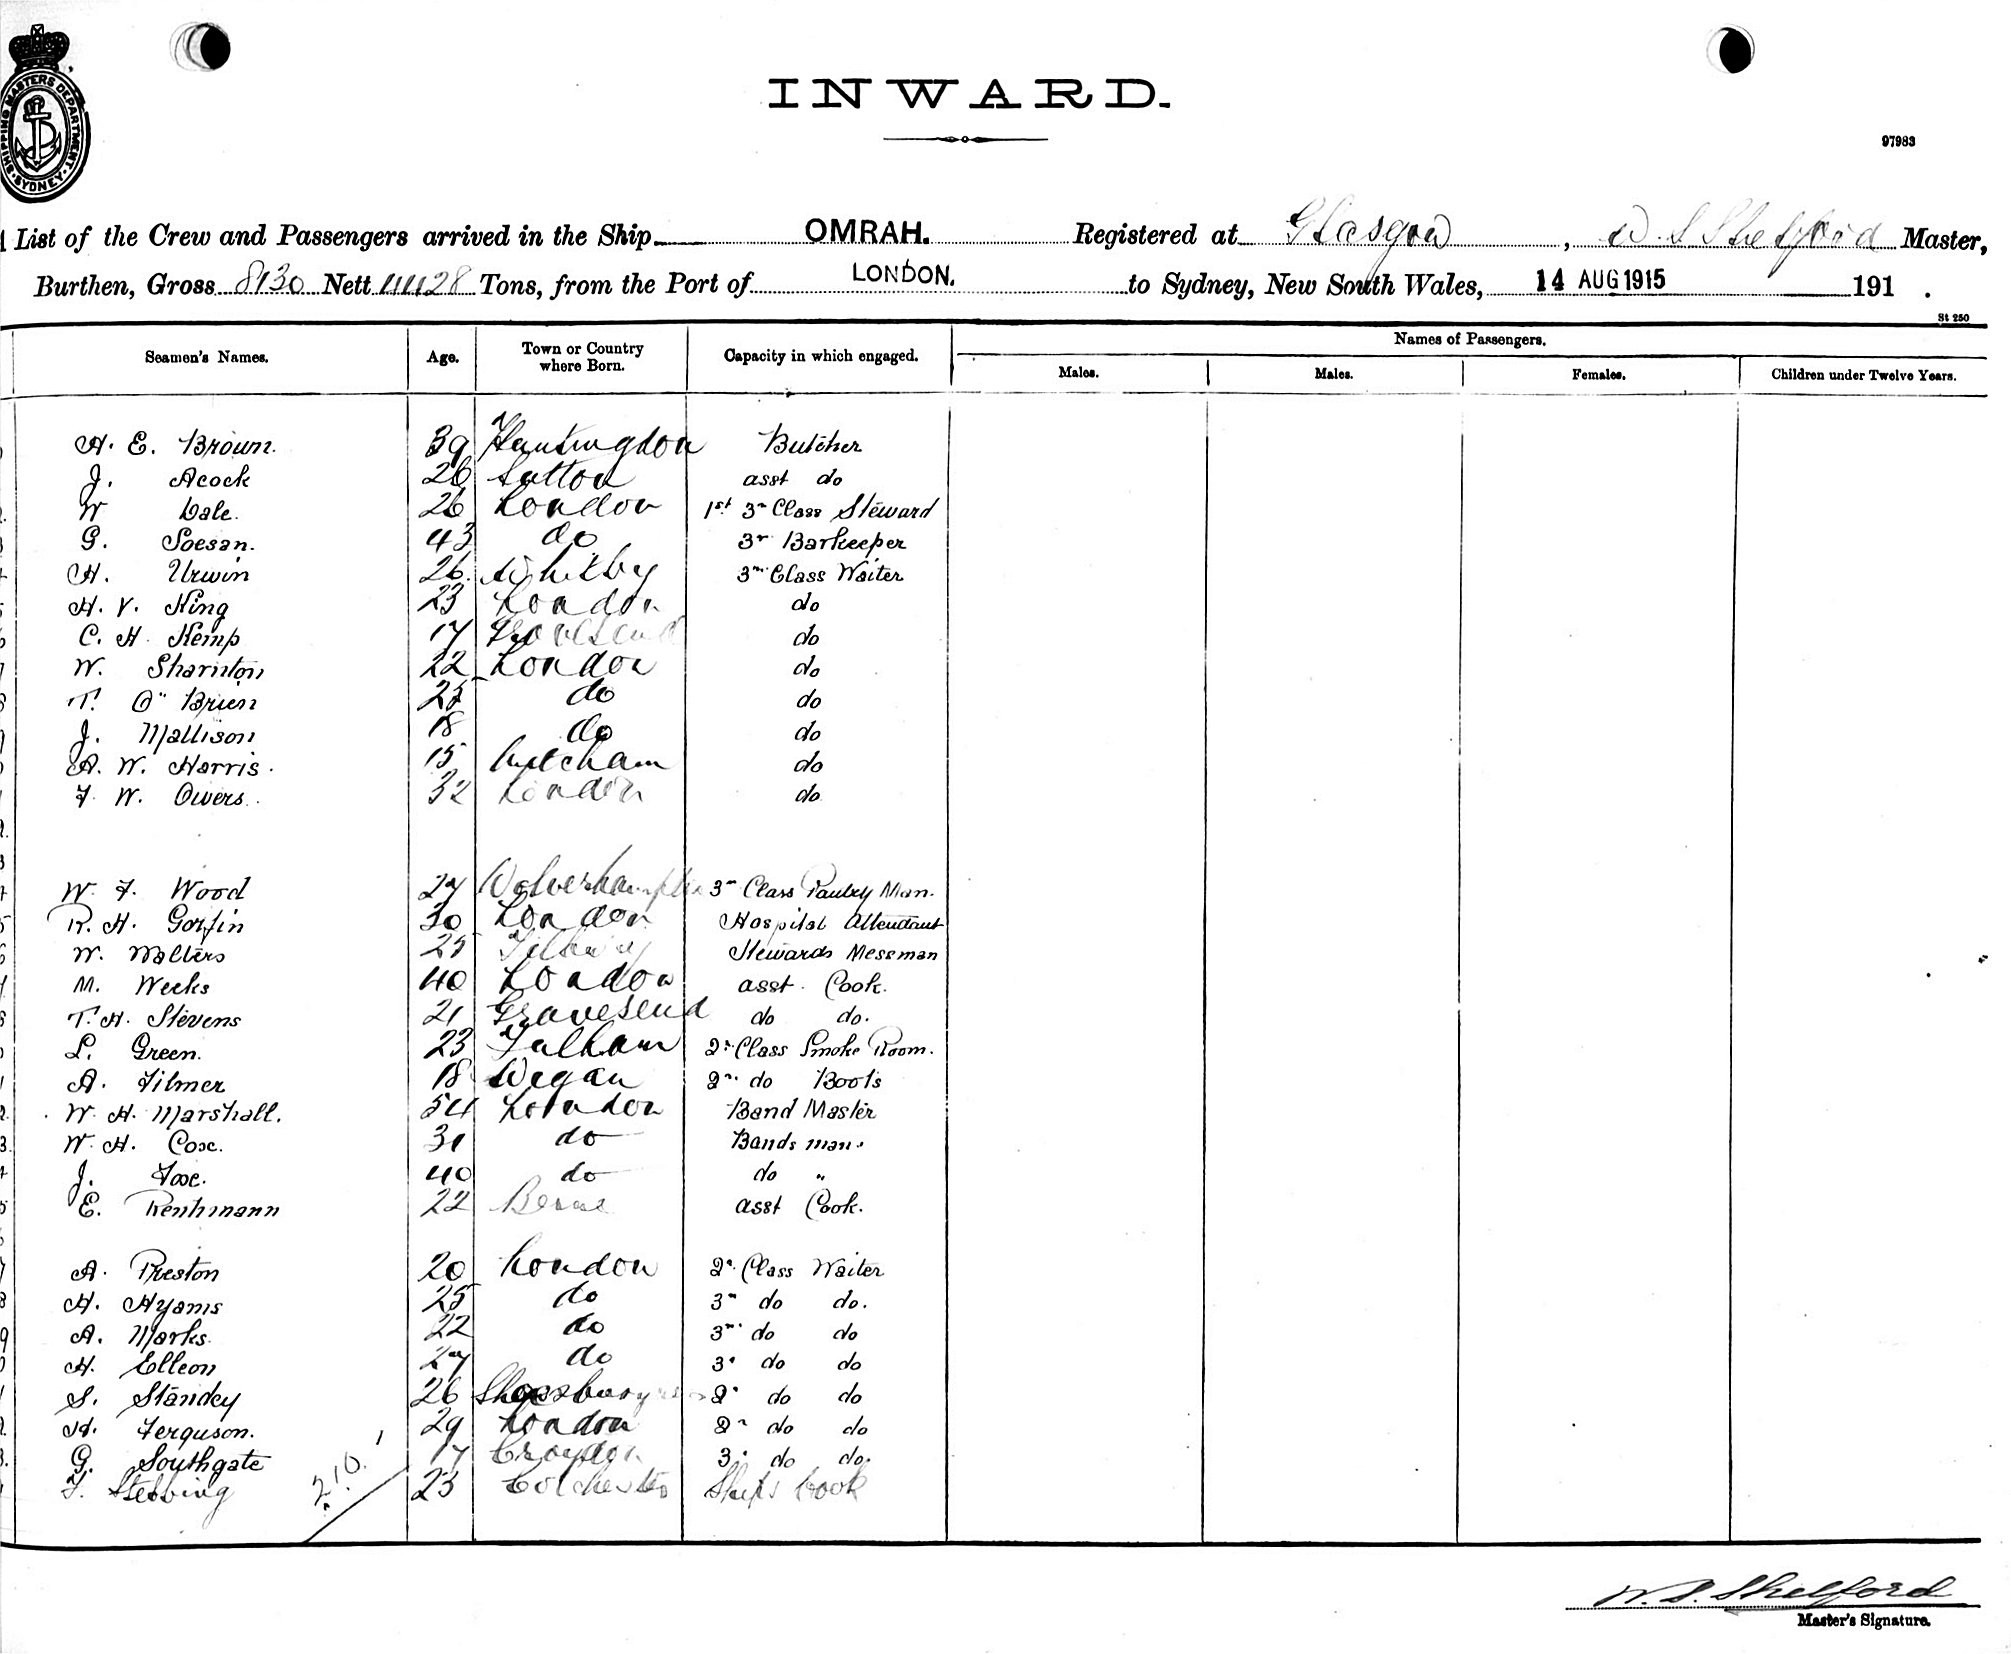 SHIPPING MASTERS DEPARTMENT. SYDNEY.
INWARD.
97983
List of the Crew and Passengers arrived in the Ship OMRAH. Registered at Glasgow, W. S Shelford Master,
Burthen, Gross 8130 Nett 4428 Tons, from the Port of LONDON. to Sydney, New South Wales, 14 AUG 1915 191 .
St 250
Seamen's Names. Age. Town or Country where Born. Capacity in which engaged. Names of Passengers.
Males. Males. Females. Children under Twelve Years.
H. E. Brown. 39 Huntingdon Butcher
J. Acock 26 Sutton asst do
W Dale. 26 London 1st 3rd Class Steward
G. Soesan. 43 do 3r Barkeeper
H. Urwin 26. Whitby 3rd Class Waiter
H. V. King 23 London do
C. H. Kemp 17 Gravesend do
W. Sharnton 22 London do
T. O" Brien 25 do do
J. Mallison 18 do do
A. W. Harris. 15 Mitcham do
F. W. Owers. 32 London do
W. F. Wood 27 Wolverhampton 3rd Class Pantry Man.
R. H. Gorfin 30 London Hospital Attendant
W. Walters 25 Tilbury Stewards Messman
M. Weeks 40 London asst. Cook.
T. H. Stevens 21 Gravesend do do.
L. Green. 23 Fulham 2nd Class Smoke Room.
A. Filmer 18 Wigan 2nd do Boots
W. H. Marshall. 54 London Band Master
W. H. Coxe. 31 do Bands man.
J. Foxe. 40 do do "
E. Renhmann 22 Berne asst Cook.
A. Preston 20 London 2nd Class Waiter
H. Hyams 25 do 3rd do do.
A. Marks. 22 do 3rd do do
H. Elleon 27 do 3rd do do
S. Standey 26 2nd do do
H. Ferguson. 29 London 2nd do do
G. Southgate 17 Croydon 3rd do do.
F. Stebbing 210. 23 Colchester Ships Cook
W. S. Shelford
Master's Signature.